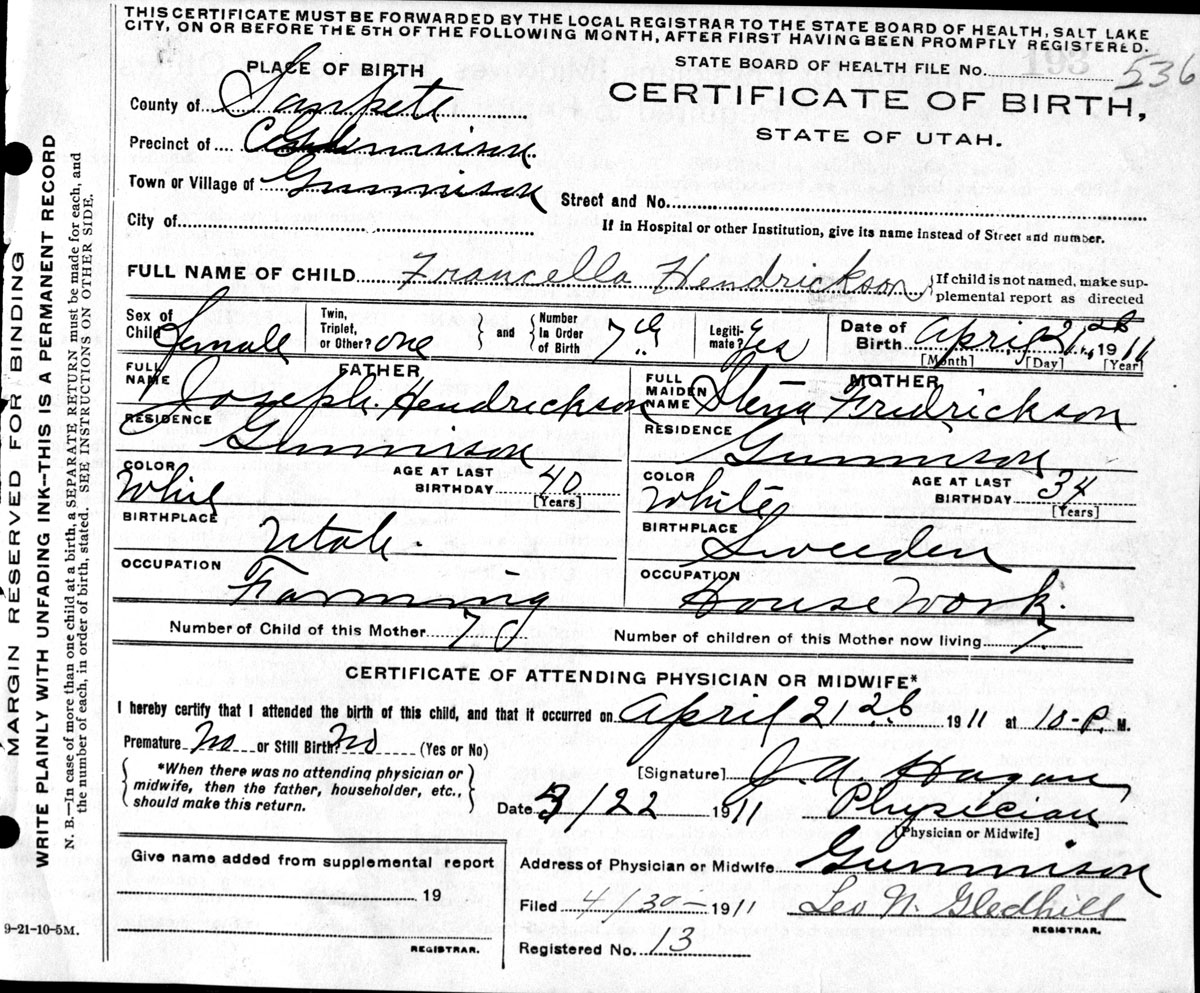 THIS CERTIFICATE MUST BE FORWARDED BY THE LOCAL REGISTRAR TO THE STATE BOARD OF HEALTH, SALT LAKE
CITY, ON OR BEFORE THE 5TH OF THE FOLLOWING MONTH, AFTER FIRST HAVING BEEN PROMPTLY REGISTERED.
STATE BOARD OF HEALTH FILE No. 193 536
PLACE OF BIRTH
CERTIFICATE OF BIRTH,
STATE OF UTAH.
County of Sanpete
Precinct of Gunnison
Town or Village of Gunnison
Street and No.
City of
If in Hospital or other Institution, give its name instead of Street and number.
FULL NAME OF CHILD Francella Hendrickson {If child is not named, make sup-
plemental report as directed
Sex of Child Female Twin, Triplet, or Other? one } and { Number In Order of Birth 7th Legiti-mate? Yes Date of Birth April 21 26 1911
[Month] [Day] [Year]
FATHER
FULL NAME Joseph Hendrickson
RESIDENCE Gunnison
COLOR Whit AGE AT LAST BIRTHDAY 40 [Years]
BIRTHPLACE Utah.
OCCUPATION Farming
MOTHER
FULL MAIDEN NAME Stena Fredrickson
RESIDENCE Gunnison
COLOR White AGE AT LAST BIRTHDAY 34 [Years]
BIRTHPLACE Sweeden
OCCUPATION House Work.
Number of Child of this Mother 7 Number of children of this Mother now living 7
CERTIFICATE OF ATTENDING PHYSICIAN OR MIDWIFE*
I hereby certify that I attended the birth of this child, and that it occurred on April 21 26 1911 at 10-P. M.
Premature No or Still Birth? No (Yes or No)
{ *When there was no attending physician or
midwife, then the father, householder, etc.,
should make this return. }
[Signature] J. A. Hagan
Date 3/22 1911 Physician
[Physician or Midwife]
Address of Physician or Midwife Gunnison
Filed 4/30- 1911 Leo N. Gledhill
REGISTRAR.
Registered No. 13
Give name added from supplemental report
19
REGISTRAR.
9-21-10-5M.
MARGIN RESERVED FOR BINDING
WRITE PLAINLY WITH UNFADING INK—THIS IS A PERMANENT RECORD
N. B.—In case of more than one child at a birth, a SEPARATE RETURN must be made for each, and
the number of each, in order of birth, stated. SEE INSTRUCTIONS ON OTHER SIDE.